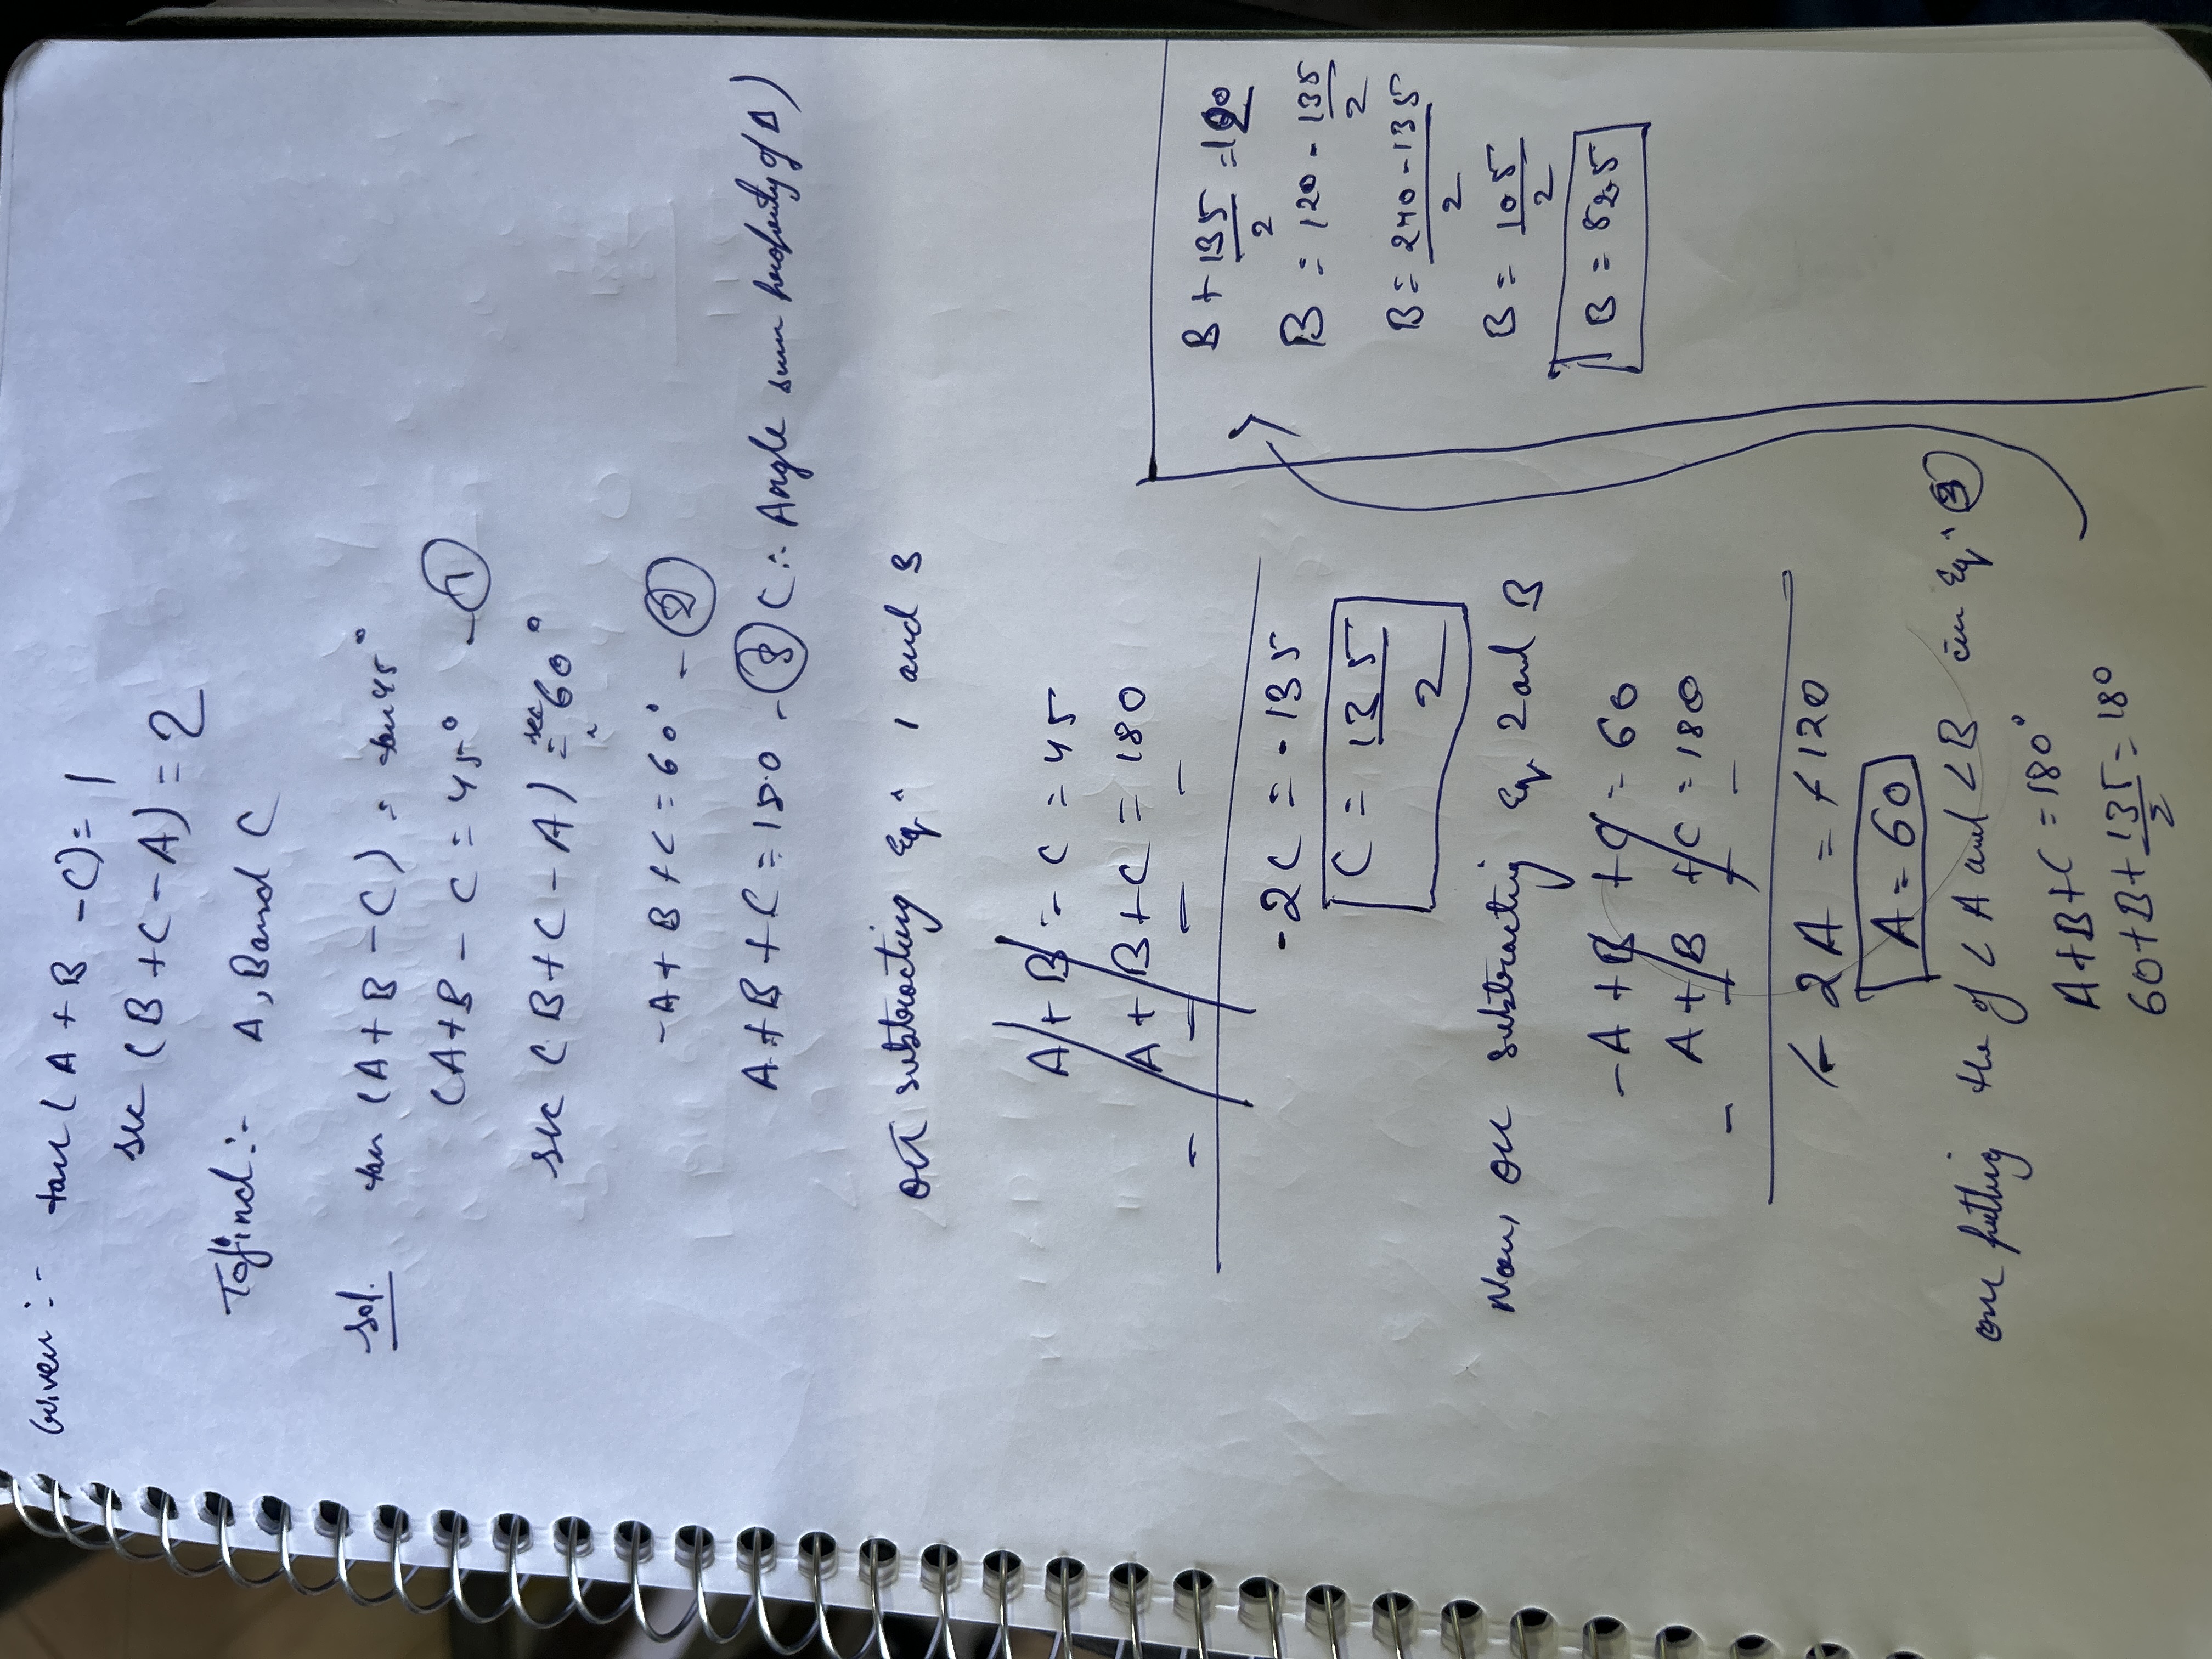 Given :- tan (A + B - C) = 1
sec (B + C - A) = 2
To find :- A, B and C
Sol. tan (A + B - C) = tan 45°
(A + B - C = 45° - ①
sec (B + C - A) = sec 60°
-A + B + C = 60° - ②
A + B + C = 180 - ③ (∴ Angle sum property of Δ)
on substracting Eq. 1 and 3
A + B - C = 45
A + B + C = 180
- - - -
-2C = -135
C = 135/2
Now, on substracting Eq. 2 and 3
-A + B + C = 60
A + B + C = 180
- - -
-2A = -120
A = 60
on putting the of ∠A and ∠B in Eq. ③
A + B + C = 180°
60 + B + 135/2 = 180
B + 135/2 = 120
B = 120 - 135/2
B = 240 - 135/2
B = 105/2
B = 52.5